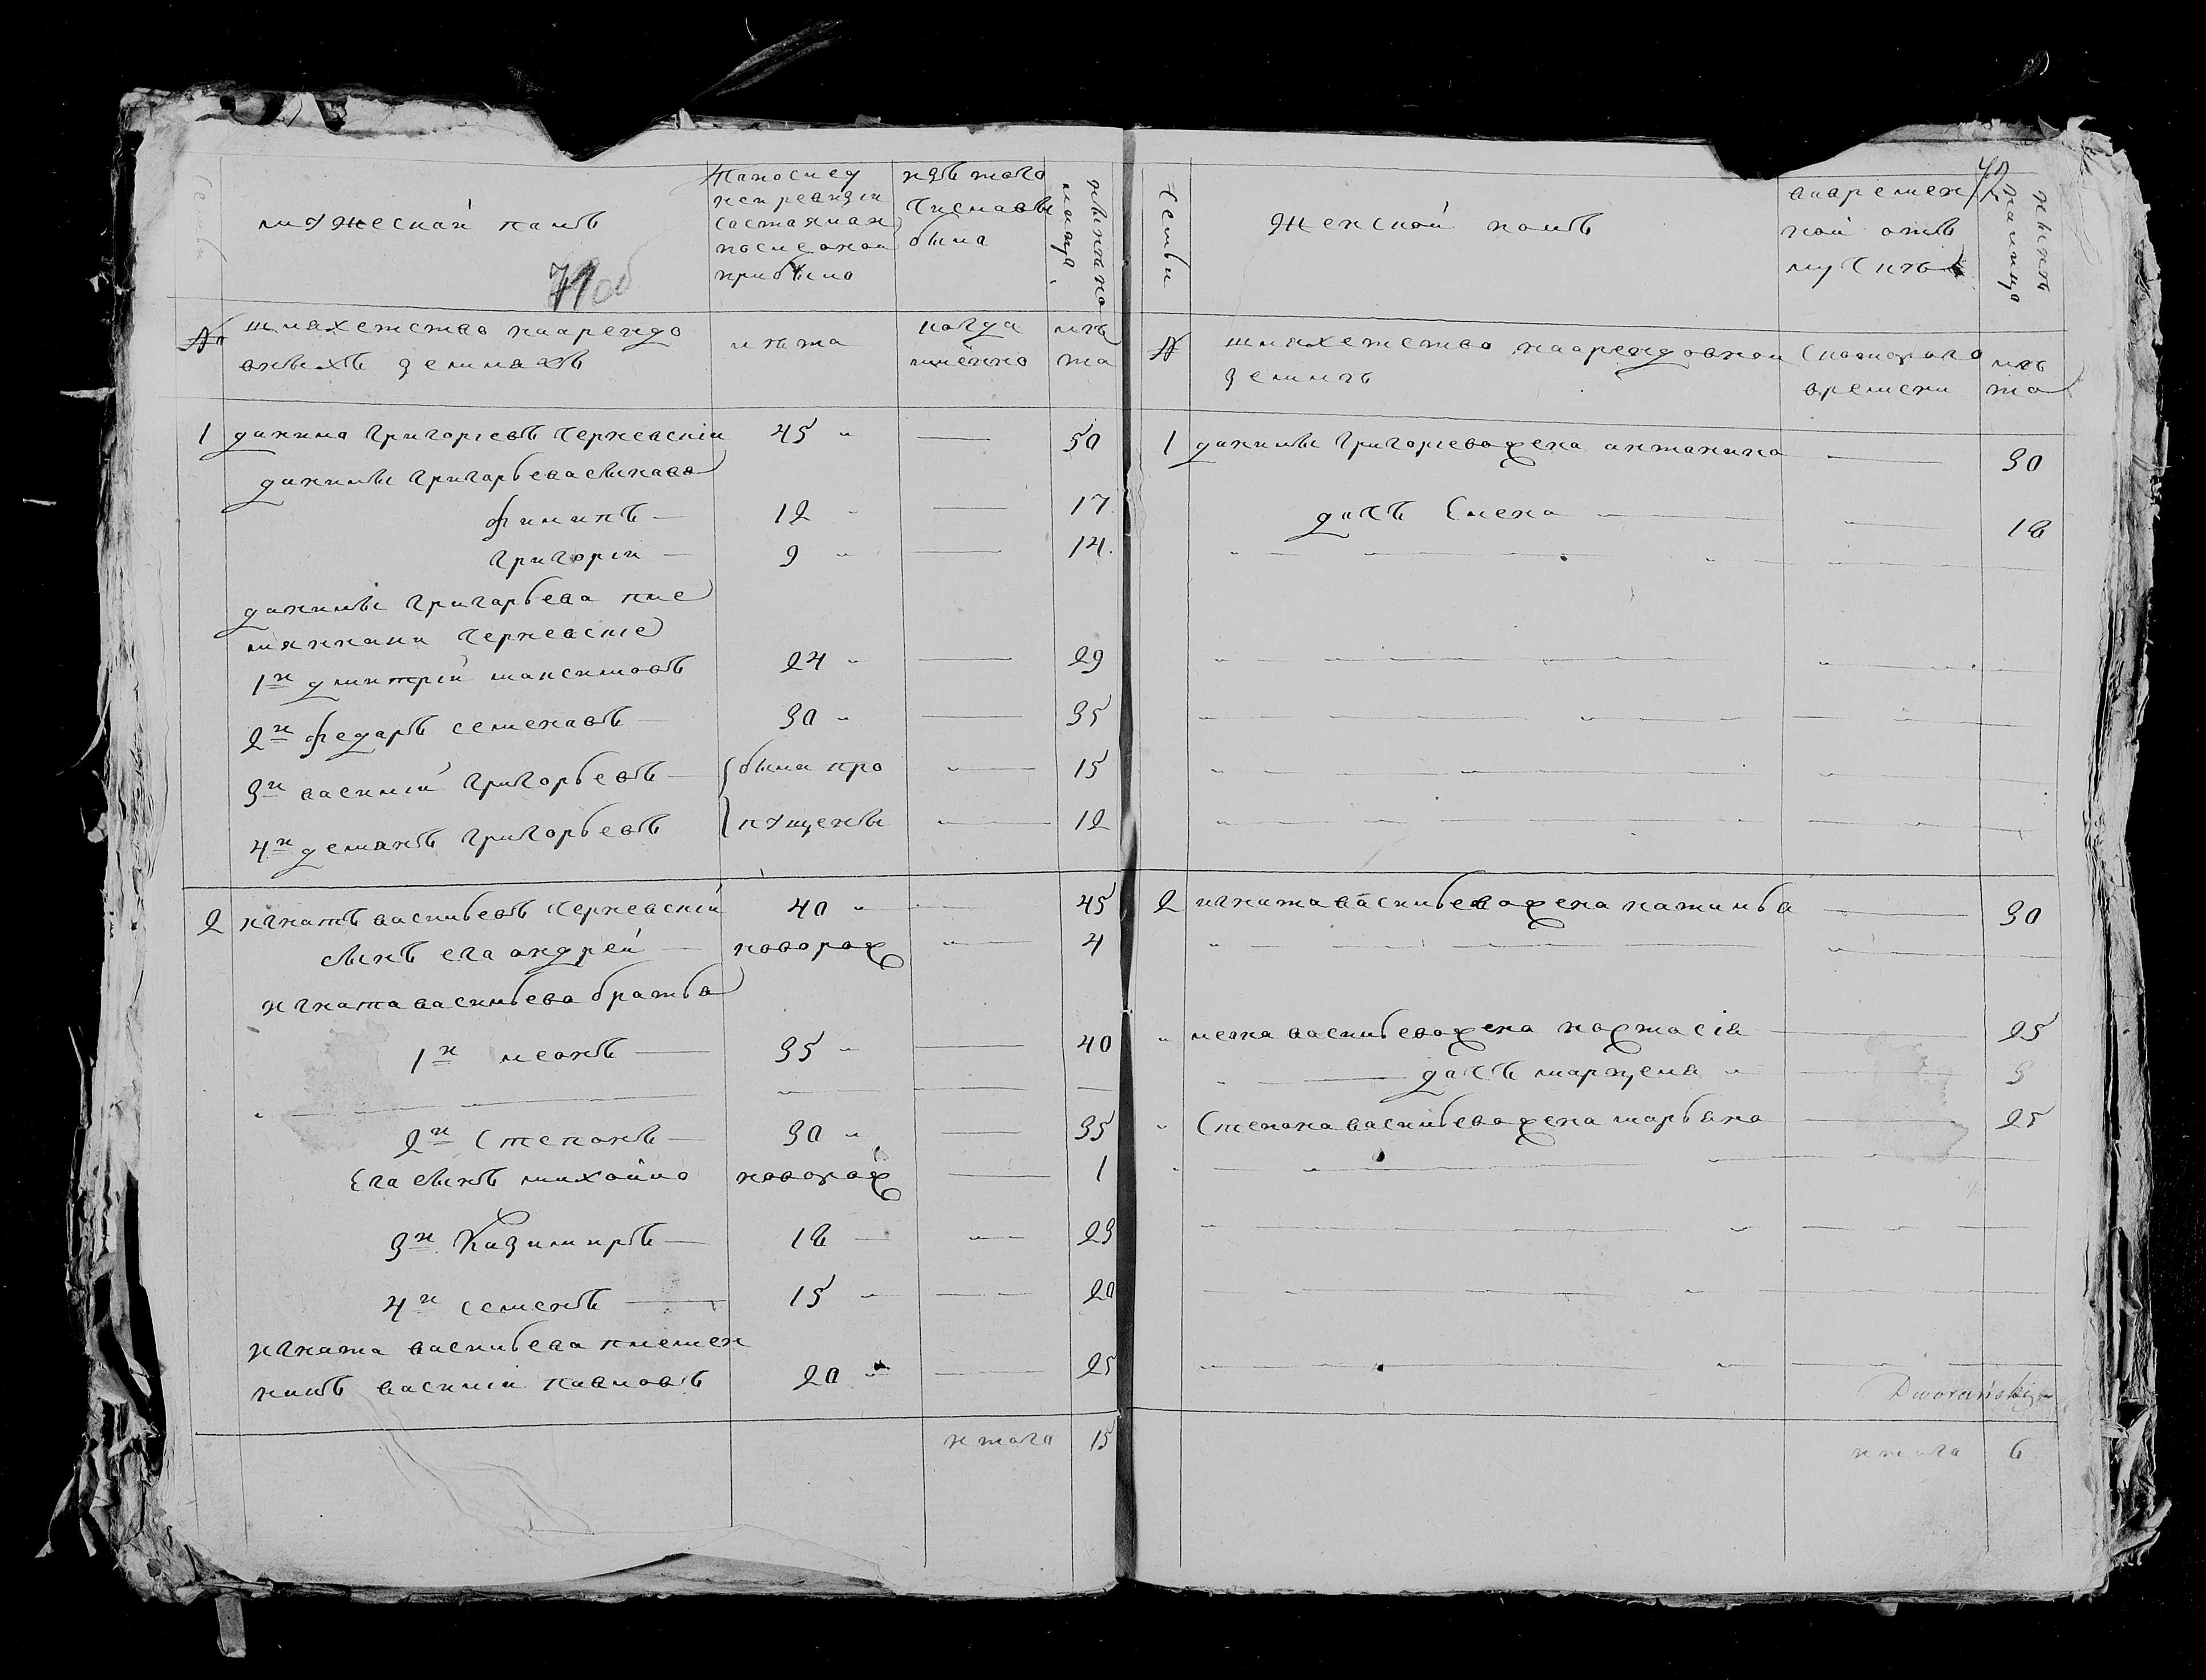 семьи
мужескай полъ
71об
Попослед
ней ревизiи
састаялая
после оной
прибыло
изътого
числавы
была
ныне на
лицо
№ шляхетство наарендо
вныхъ землахъ
лета
когда
имённо
ле
та
1 данила Григорiевъ Черневскiи 45 50
данилы Григарьева сынава
филипъ 12 17
Григорiи 9 14
данилы Григарьева пле
мянники Черневскiе
1й дмитрiй максимовъ 24 29
2й федаръ семенавъ 30 35
3й василiй Григорьевъ были про 15
4й демянъ Григорьевъ пущены 12
2 игнатъ васильевъ Черневскiй 40 45
сынъ ега андрей новорож 4
игната васильева братьа
1й леонъ 35 40
2й Степонъ 30 35
Ега сынъ михайло новорож 1
3й Казимиръ 18 23
4й семенъ 15 20
игната васильева племен
никъ василiй павловъ 20 25
итого 15
72
семьи
Женской полъ
вавремен
ной отъ
лучкъ
нынъ
налицо
№ шляхетство наарендовной
землъ
скоторого
времени
лъ
та
1 данилы Григорiева жена антанина 30
дочъ Елена 18
2 игната васильева жена катильа 30
леона васильева жена настасiа 25
дочъ марцела 3
Степана васильева жена марьяна 25
Dworański
итого 6